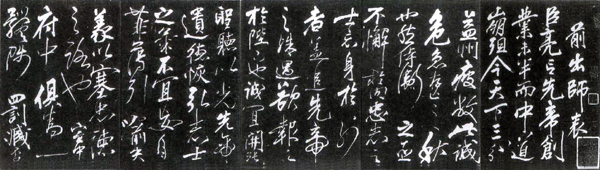 前出師表
臣亮言先帝創
業未半而中道
崩殂今天下三分
益州疲敝此誠
危急存亡之秋
也然侍衛之臣
不懈於内忠志之
士忘身於外
者蓋追先帝
之殊遇欲報之
於陛下也誠宜開張
聖聽以光先帝
遺德恢弘志士
之氣不宜妄自
菲薄引喻失
義以塞忠諫
之路也宮中
府中俱為一
體陟罰臧否